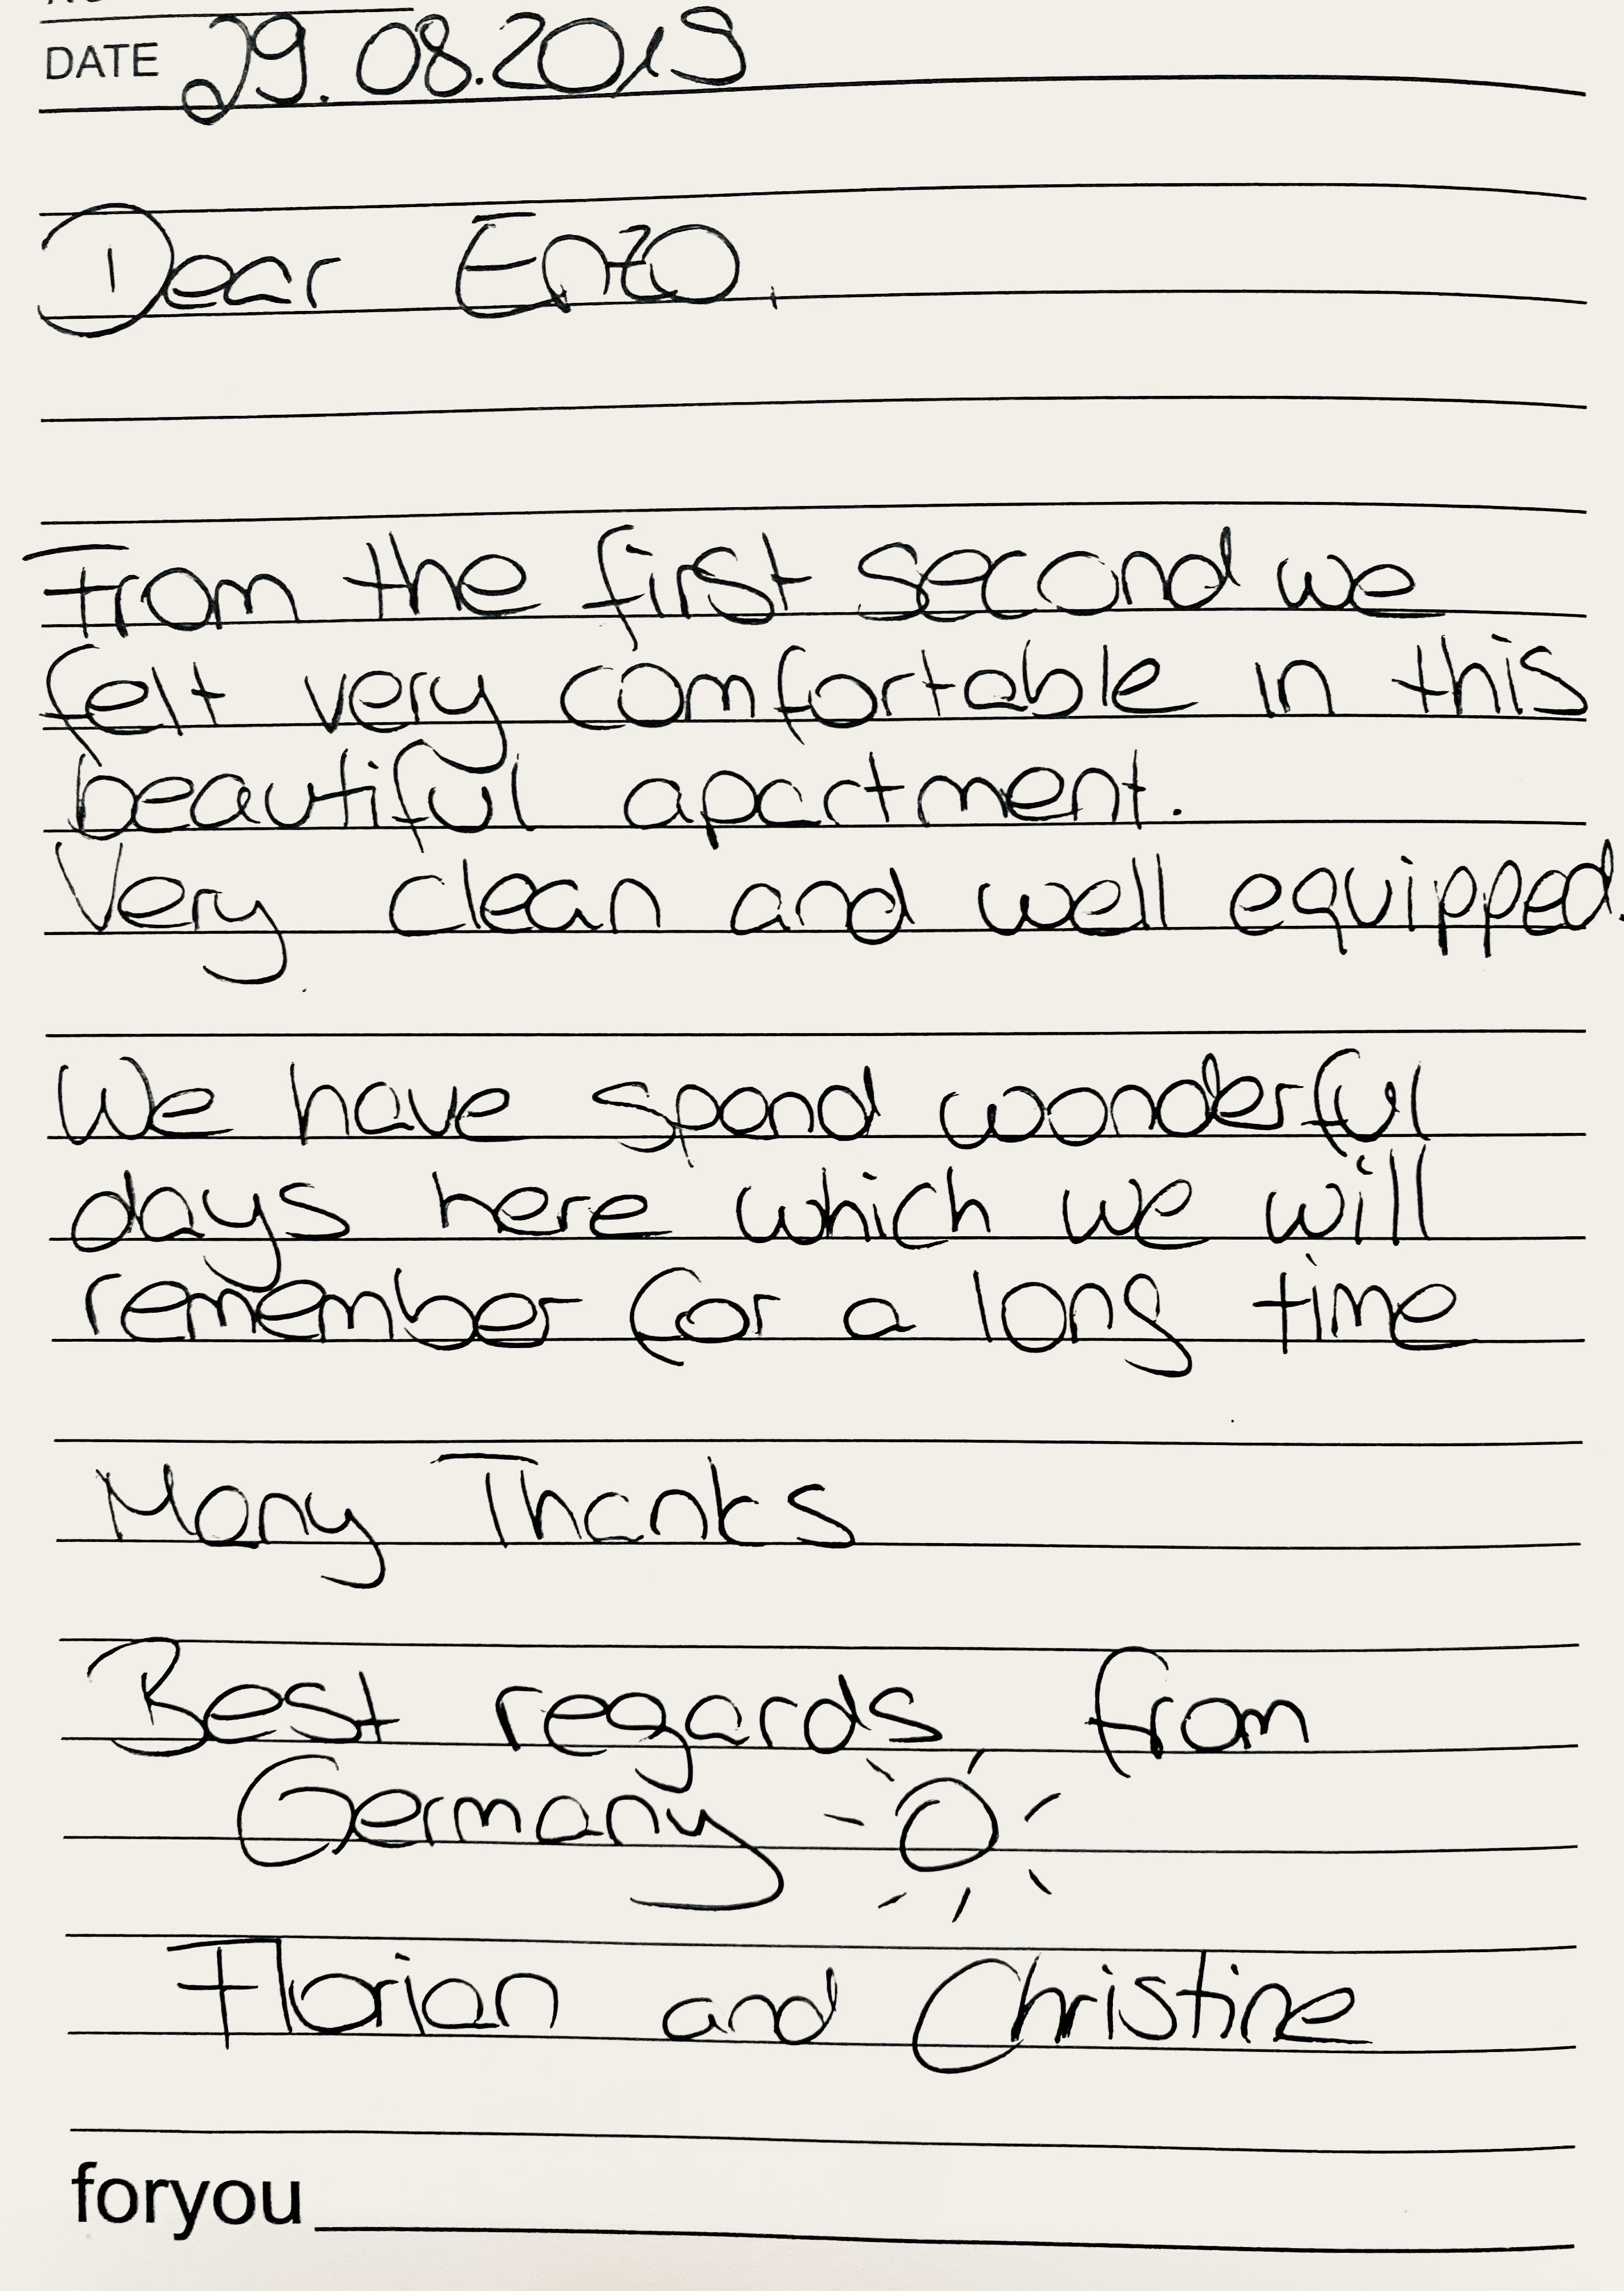 DATE 29.08.2019
Dear Enzo,
From the first second we
felt very comfortable in this
beautiful apartment.
Very clean and well equipped.
We have spend wonderful
days here which we will
remember for a long time
Many Thanks
Best regards from
Germany
Florian and Christine
foryou